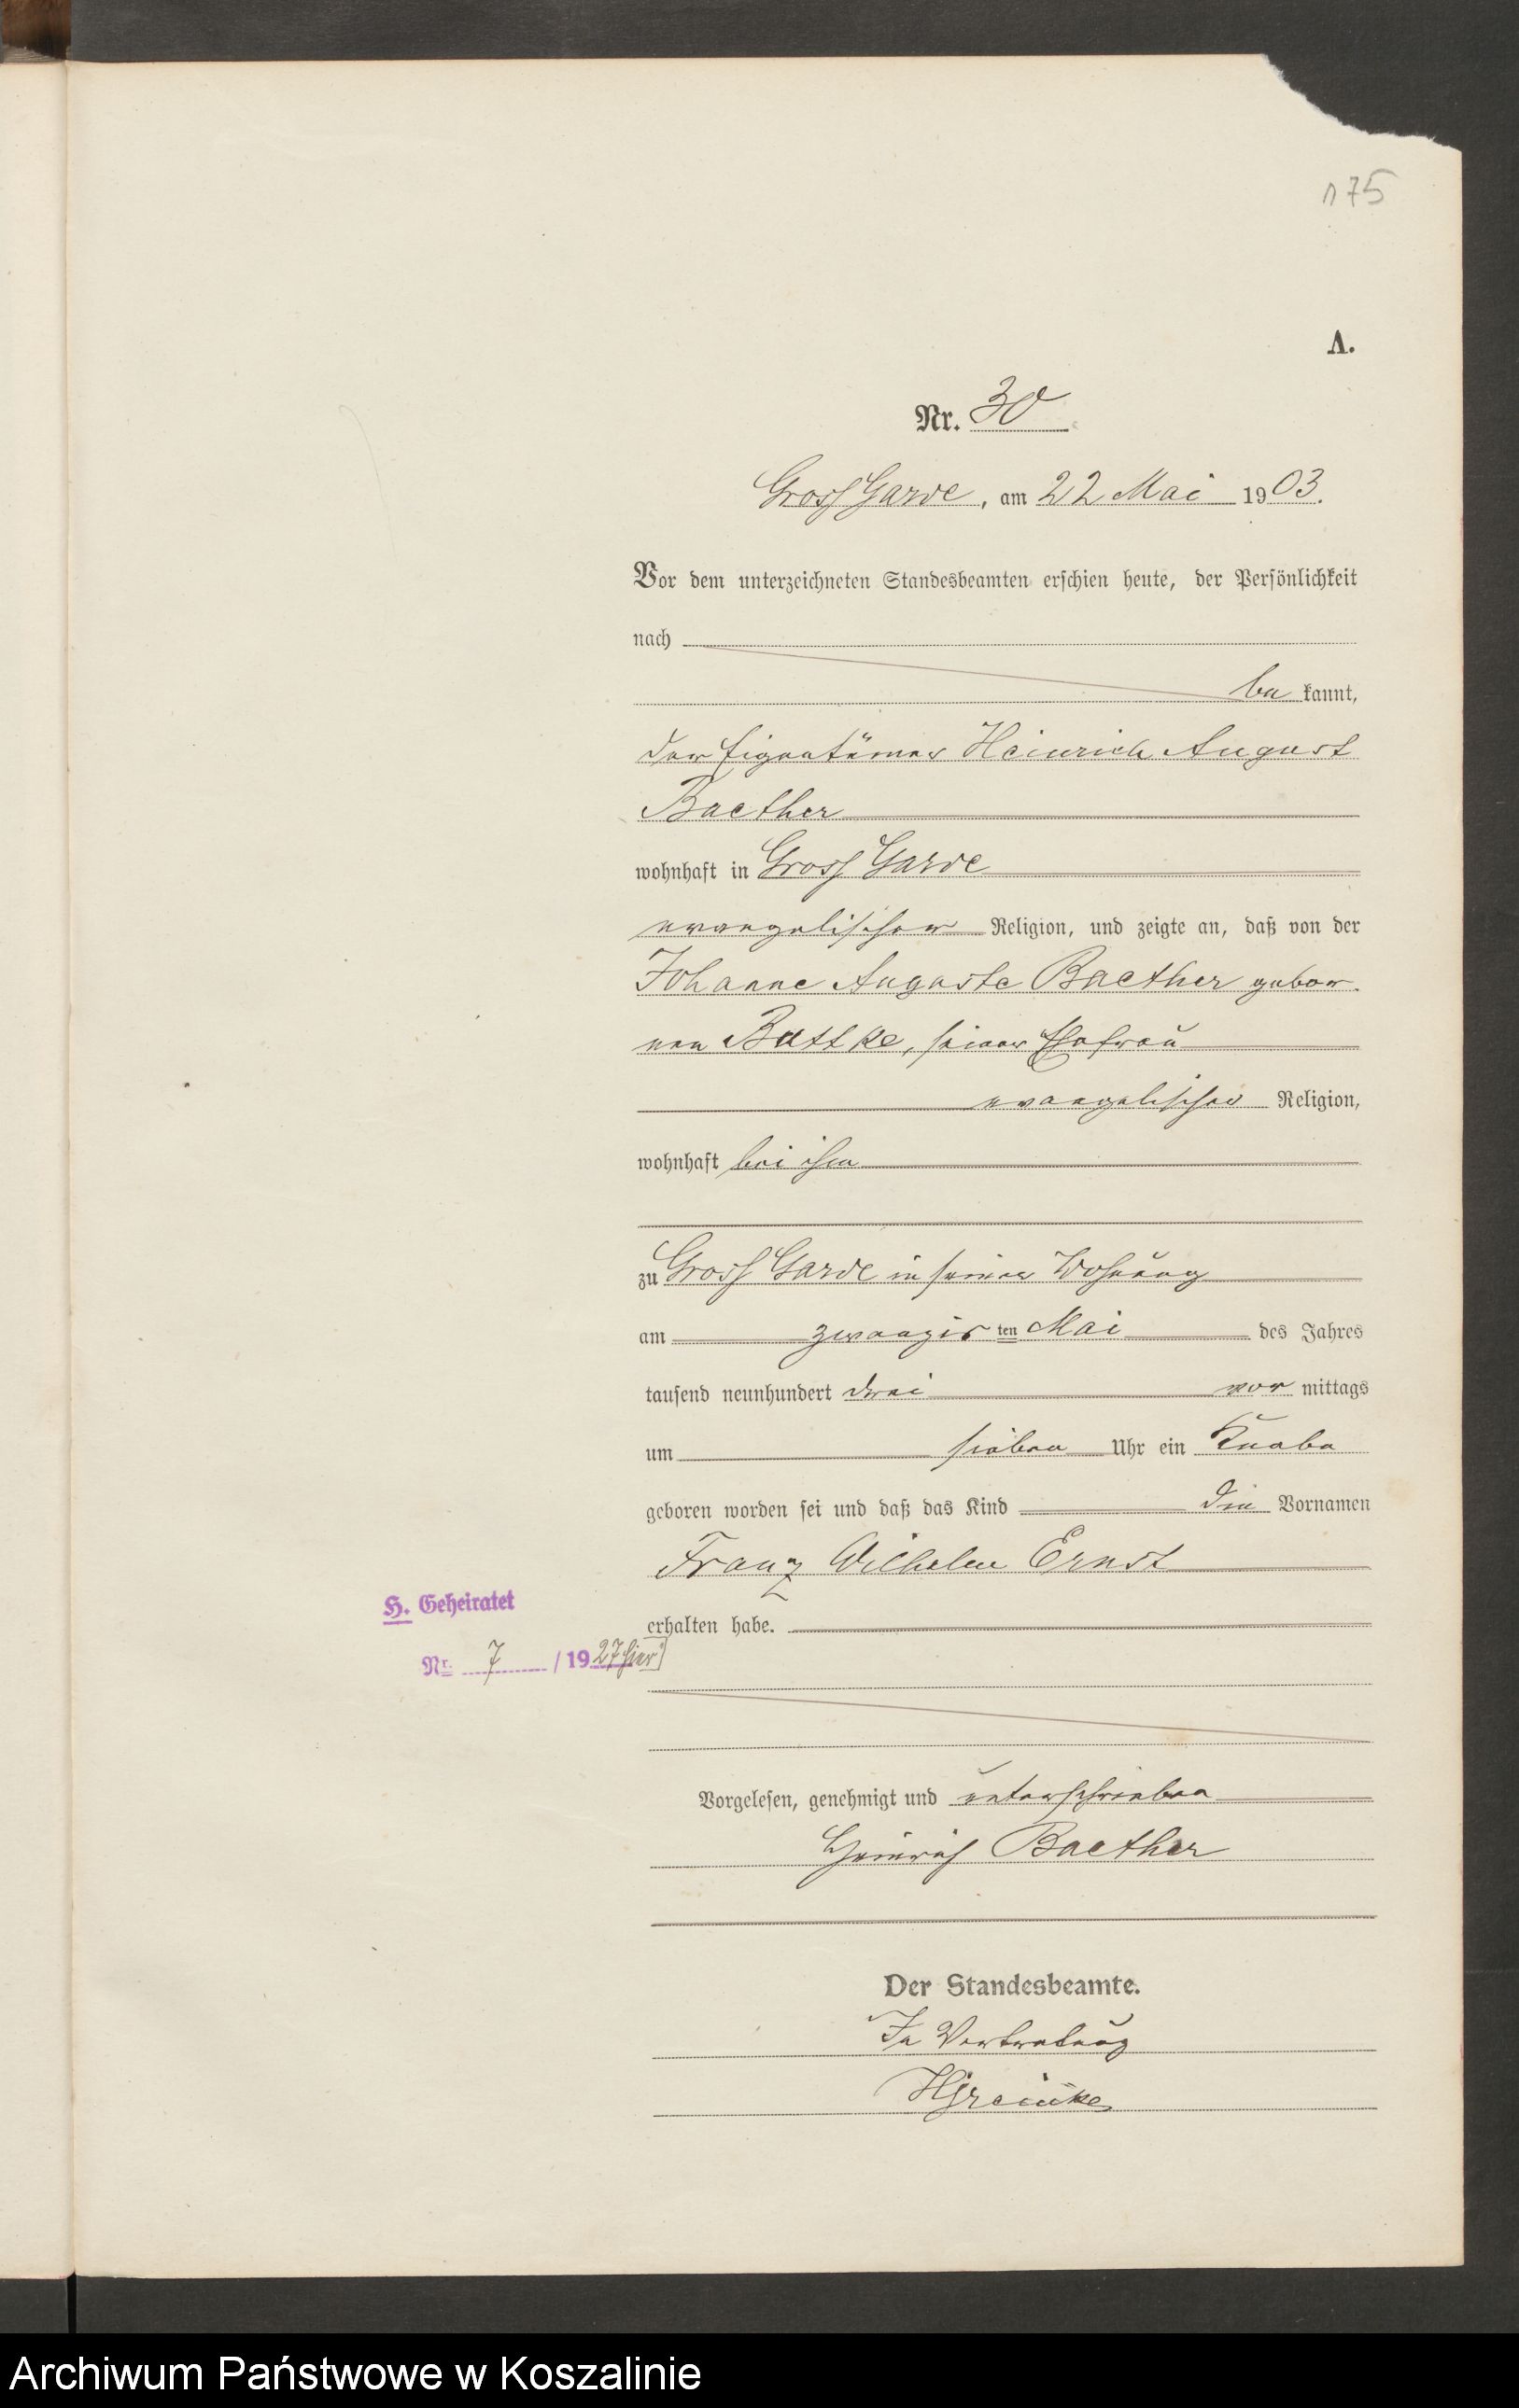 175
A.
Nr. 30
Gross Garde, am 22 Mai 1903.
Vor dem unterzeichneten Standesbeamten erschien heute, der Persönlichkeit
nach
be kannt,
der Eigentümer Heinrich August
Baether
wohnhaft in Gross Garde
evangelischer Religion, und zeigte an, daß von der
Johanne Auguste Baether gebor-
nen Buttke, seiner Ehefrau
evangelischer Religion,
wohnhaft bei ihm
zu Gross Garde in seiner Wohnung
am zwanzigsten Mai des Jahres
tausend neunhundert drei vor mittags
um sieben Uhr ein Knabe
geboren worden sei und daß das Kind die Vornamen
Franz Wilhelm Ernst
H. Geheiratet
erhalten habe.
Nr. 7 / 1927 hier
Vorgelesen, genehmigt und unterschrieben
Heinrich Baether
Der Standesbeamte.
In Vertretung
Archiwum Państwowe w Koszalinie